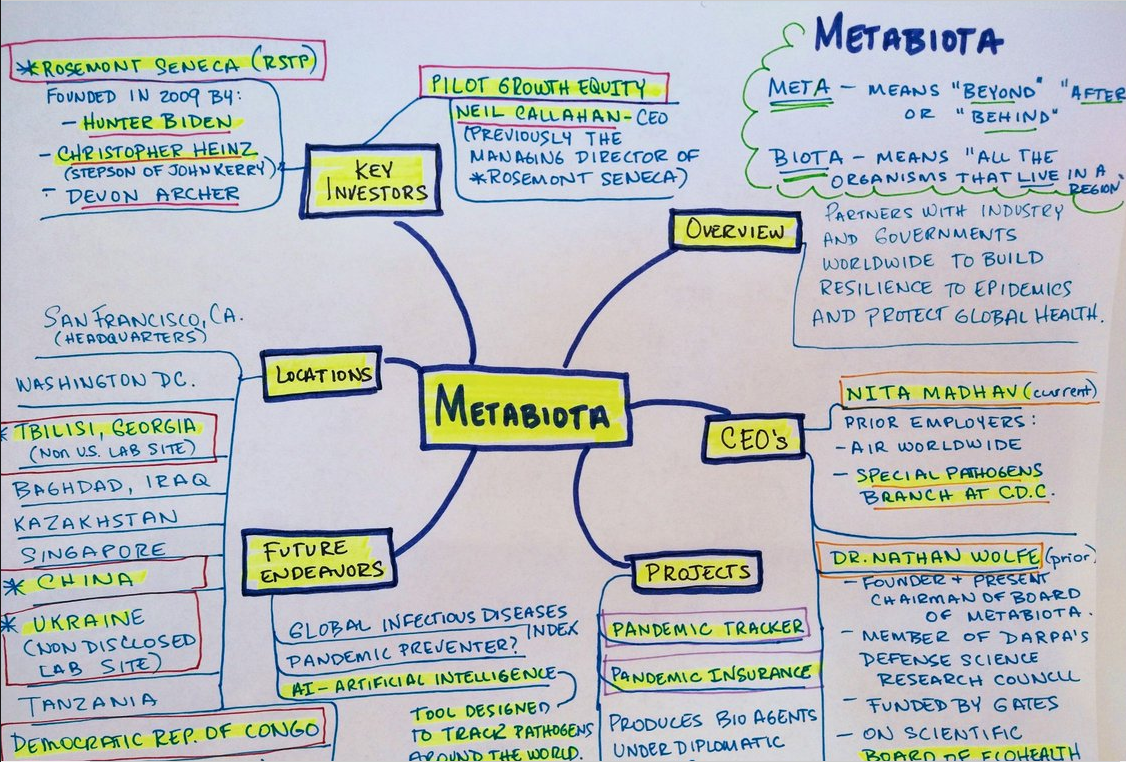 METABIOTA
META - MEANS "BEYOND" "AFTER
OR "BEHIND"
BIOTA - MEANS "ALL THE
ORGANISMS THAT LIVE IN A
REGION"
*ROSEMONT SENECA (RSTP)
FOUNDED IN 2009 BY:
- HUNTER BIDEN
- CHRISTOPHER HEINZ
(STEPSON OF JOHN KERRY)
- DEVON ARCHER
PILOT GROWTH EQUITY
NEIL CALLAHAN - CEO
(PREVIOUSLY THE
MANAGING DIRECTOR OF
*ROSEMONT SENECA)
KEY
INVESTORS
OVERVIEW
PARTNERS WITH INDUSTRY
AND GOVERNMENTS
WORLDWIDE TO BUILD
RESILIENCE TO EPIDEMICS
AND PROTECT GLOBAL HEALTH.
SAN FRANCISCO, CA.
(HEADQUARTERS)
WASHINGTON DC.
* TBILISI, GEORGIA
(NON U.S. LAB SITE)
BAGHDAD, IRAQ
KAZAKHSTAN
SINGAPORE
* CHINA
* UKRAINE
(NON DISCLOSED
LAB SITE)
TANZANIA
DEMOCRATIC REP. OF CONGO
LOCATIONS
METABIOTA
CEO's
NITA MADHAV (current)
PRIOR EMPLOYERS:
- AIR WORLDWIDE
- SPECIAL PATHOGENS
BRANCH AT C.D.C.
DR. NATHAN WOLFE (prior)
- FOUNDER + PRESENT
CHAIRMAN OF BOARD
OF METABIOTA.
- MEMBER OF DARPA'S
DEFENSE SCIENCE
RESEARCH COUNCIL
- FUNDED BY GATES
- ON SCIENTIFIC
BOARD OF ECOHEALTH
FUTURE
ENDEAVORS
GLOBAL INFECTIOUS DISEASES
INDEX
PANDEMIC PREVENTER?
AI - ARTIFICIAL INTELLIGENCE
TOOL DESIGNED
TO TRACK PATHOGENS
AROUND THE WORLD.
PROJECTS
PANDEMIC TRACKER
PANDEMIC INSURANCE
PRODUCES BIO AGENTS
UNDER DIPLOMATIC